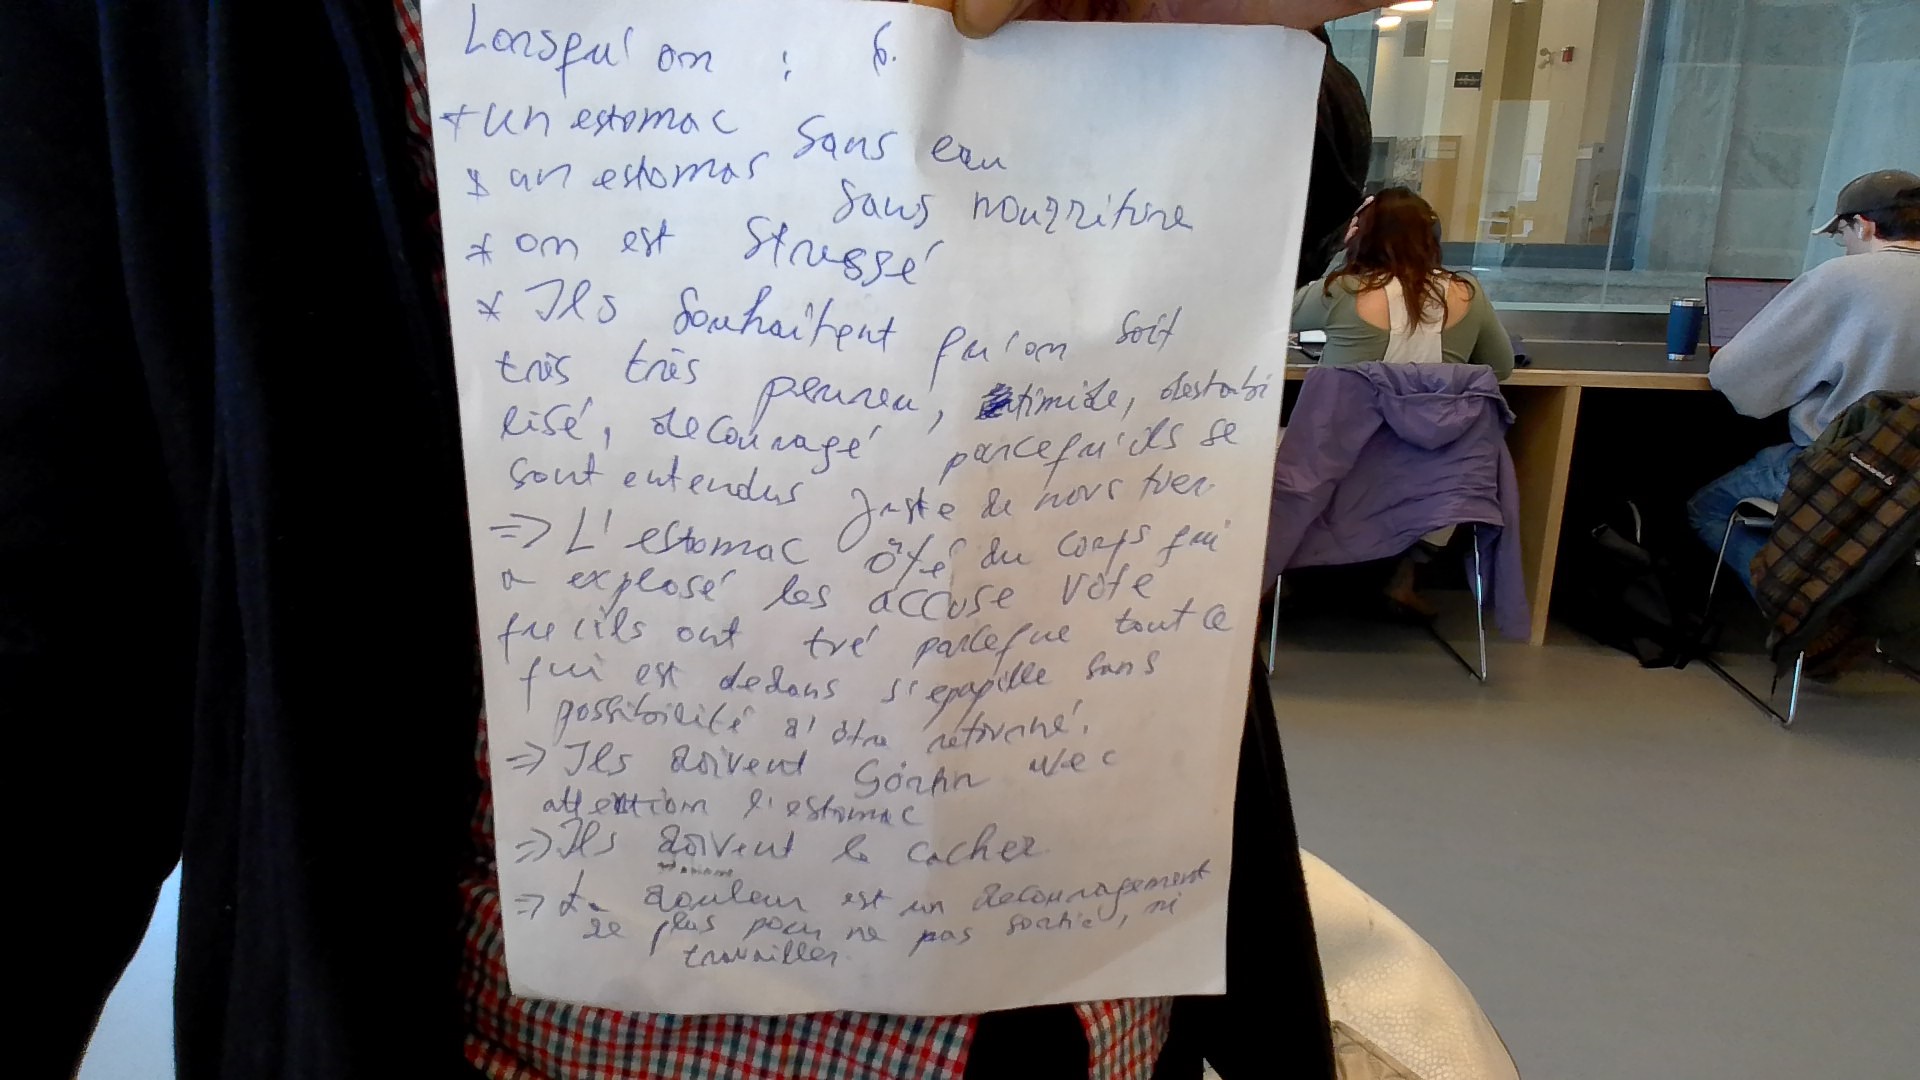 Lorsqu'on : 6.
* un estomac sans eau
* un estomac sans nourriture
* on est stressé
* Ils souhaitent qu'on soit
très très peureu, timide, destabi
lisé, decouragé parcequ'ils se
sont entendus juste de nous tuer
=> L'estomac ôté du corps qui
a explosé les accuse vote
que ils ont tué parceque tout ce
qui est dedans s'epapille sans
possibilité d'être retourné.
=> Ils doivent avec
attention l'estomac
=> Ils doivent le cacher
=> La douleur est un decouragement
de plus pour ne pas sortir, ni
travailler.